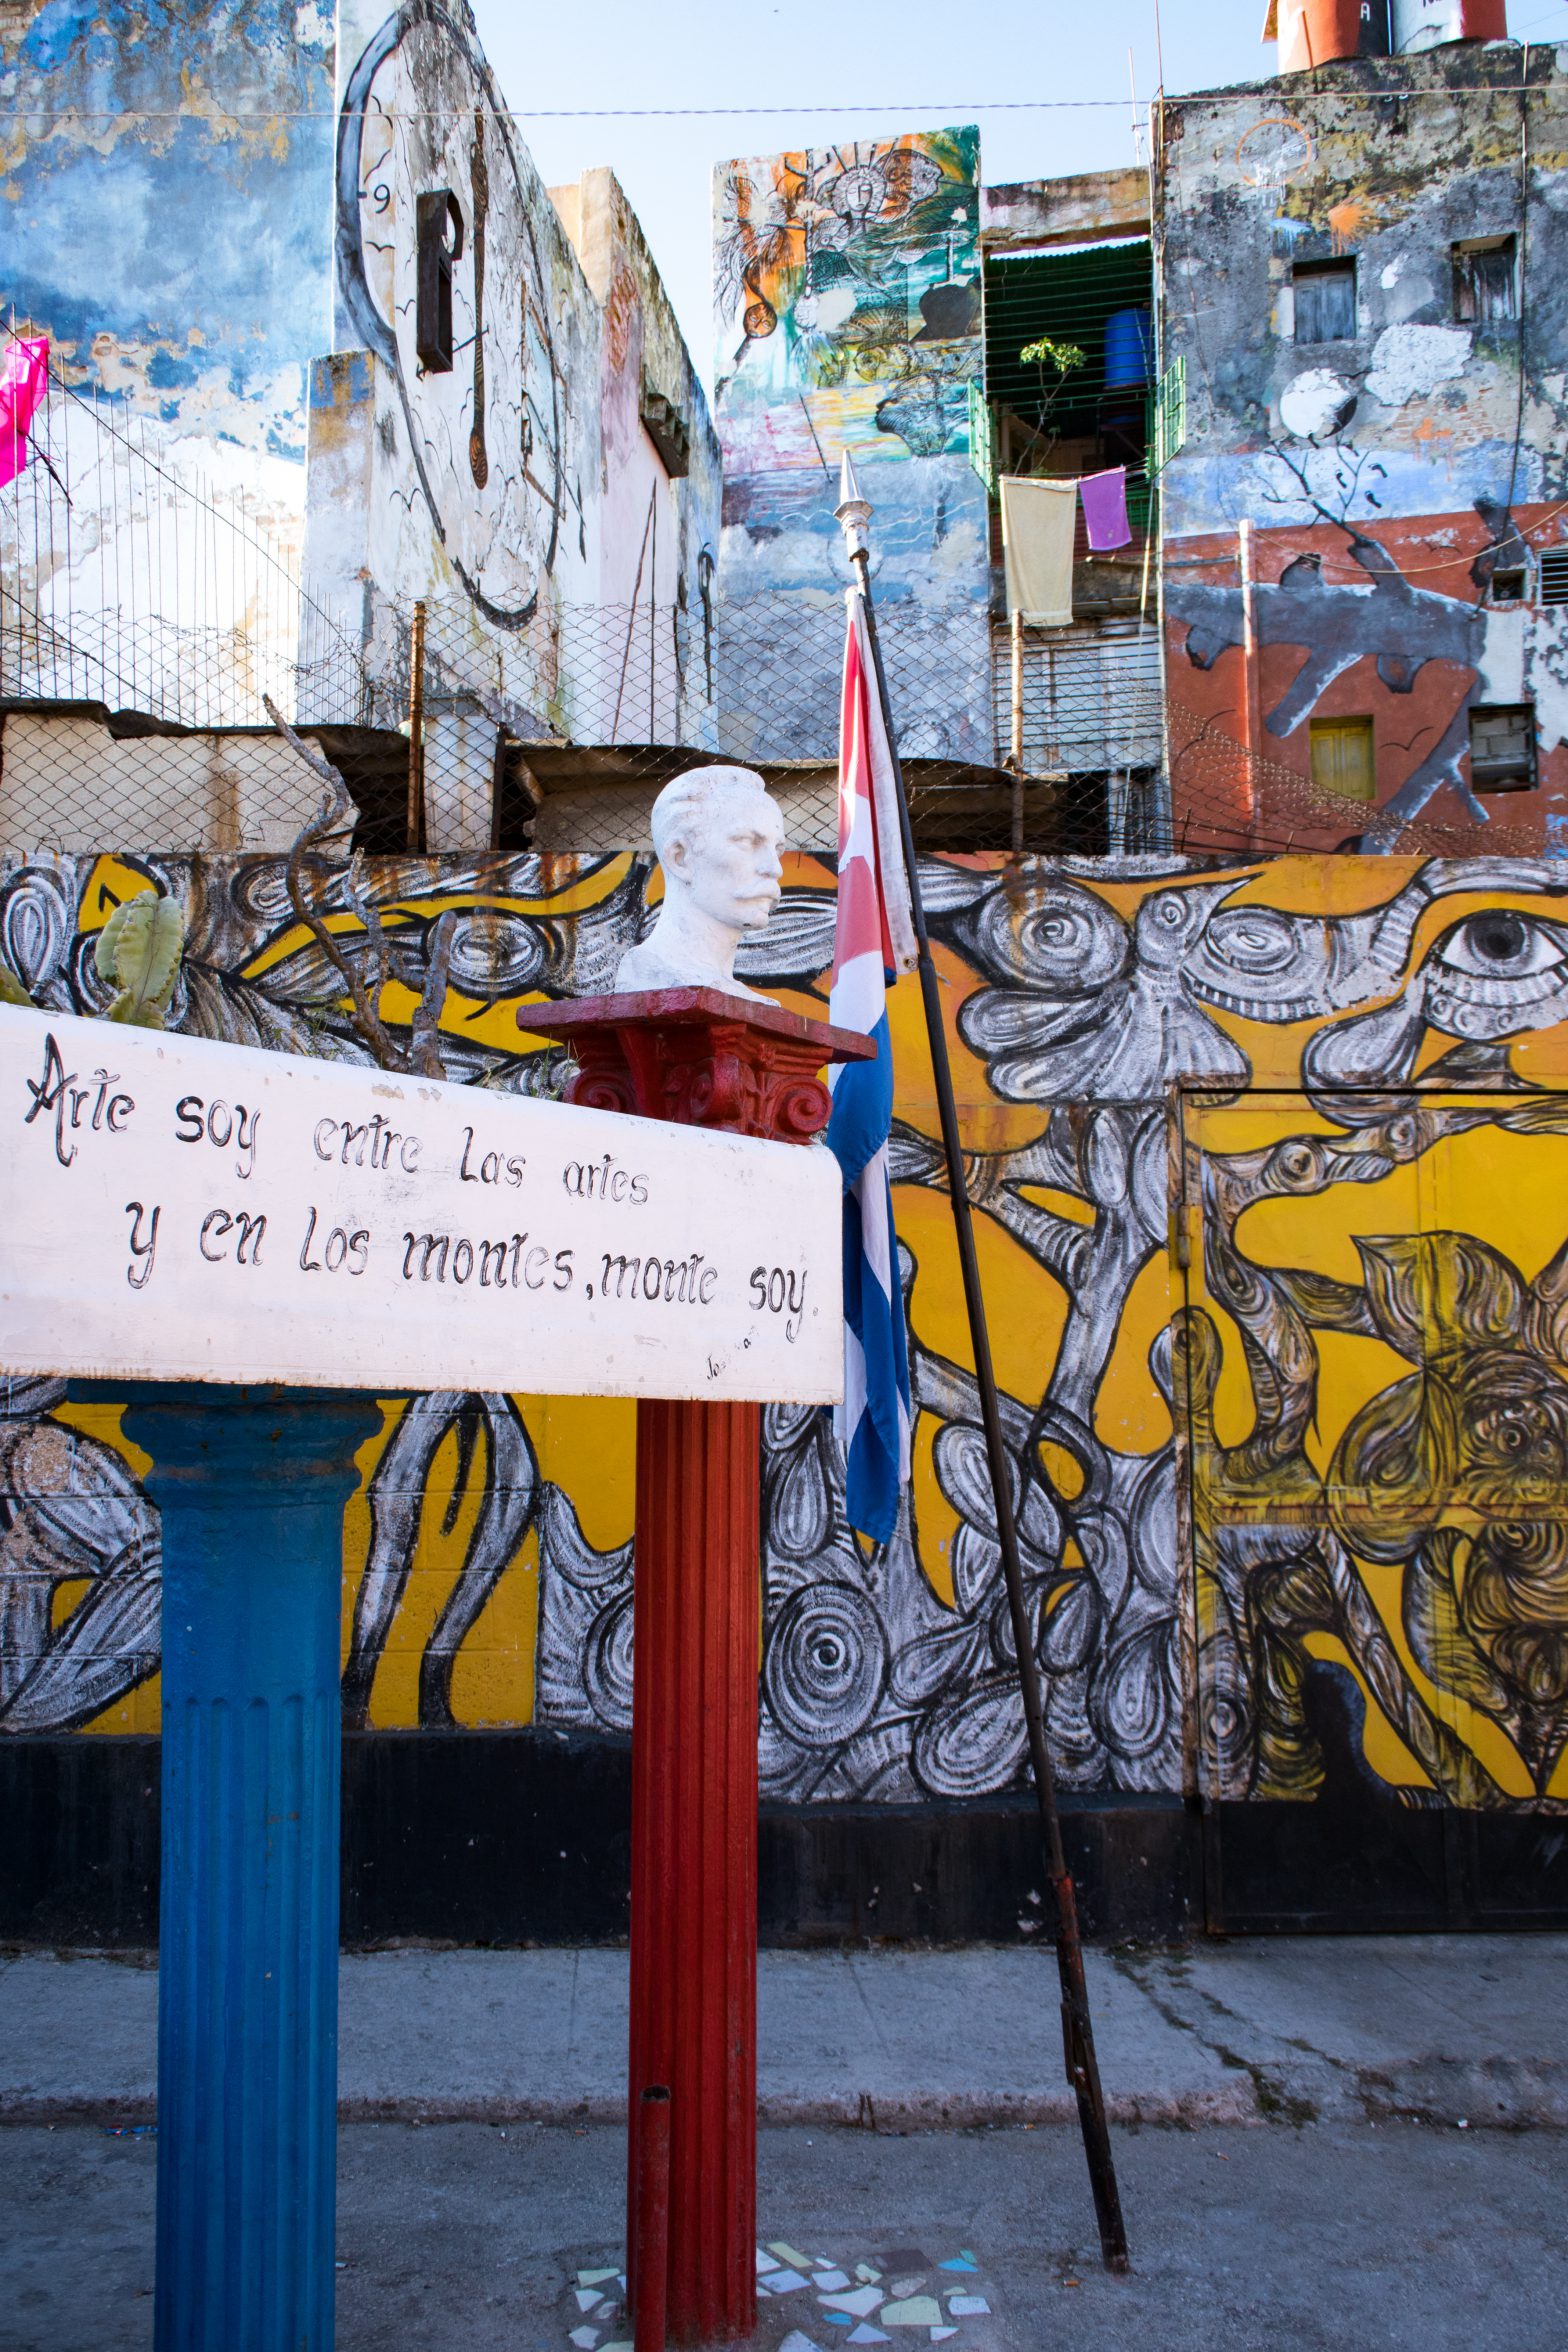 9
1
Arte soy entre las artes
y en los montes, monte soy.